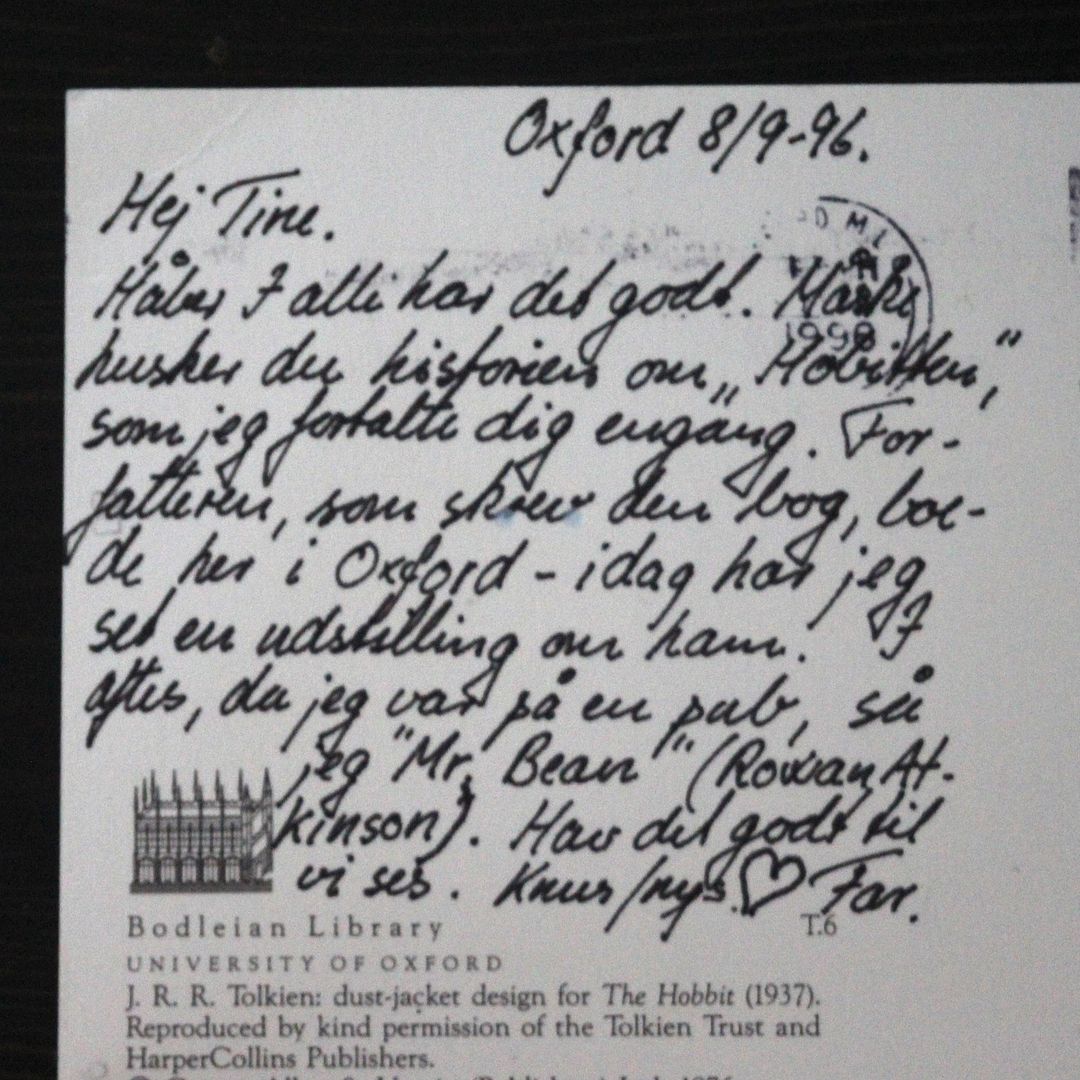 Oxford 8/9-96.
Hej Tine.
Håber I alle har det godt. Måske
husker du historien om „Hobitten",
som jeg fortalte dig engang. For-
fatteren, som skrev den bog, boe-
de her i Oxford - idag har jeg
set en udstilling om ham. I
aftes, da jeg var på en pub, så
jeg "Mr. Bean" (Rowan At-
kinson). Hav det godt til
vi ses. Knus/nys ♡ Far.
Bodleian Library
T.6
UNIVERSITY OF OXFORD
J. R. R. Tolkien: dust-jacket design for The Hobbit (1937).
Reproduced by kind permission of the Tolkien Trust and
HarperCollins Publishers.